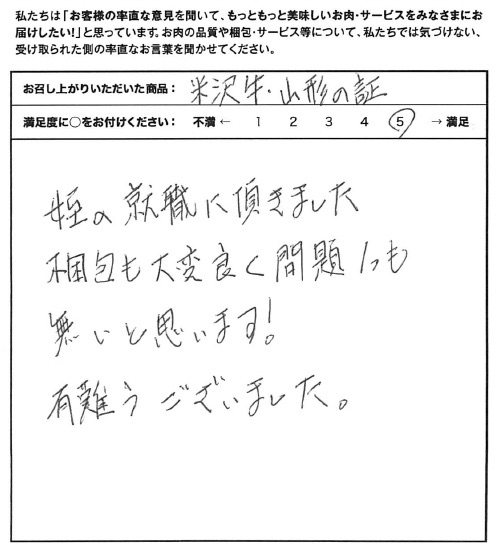 私たちは「お客様の率直な意見を聞いて、もっともっと美味しいお肉・サービスをみなさまにお
届けしたい!」と思っています。お肉の品質や梱包・サービス等について、私たちでは気づけない、
受け取られた側の率直なお言葉を聞かせてください。
お召し上がりいただいた商品: 米沢牛・山形の証
満足度に○をお付けください: 不満 ← 1 2 3 4 5 → 満足
姪の就職に頂きました
梱包も大変良く問題1つも
無いと思います!
有難うございました。